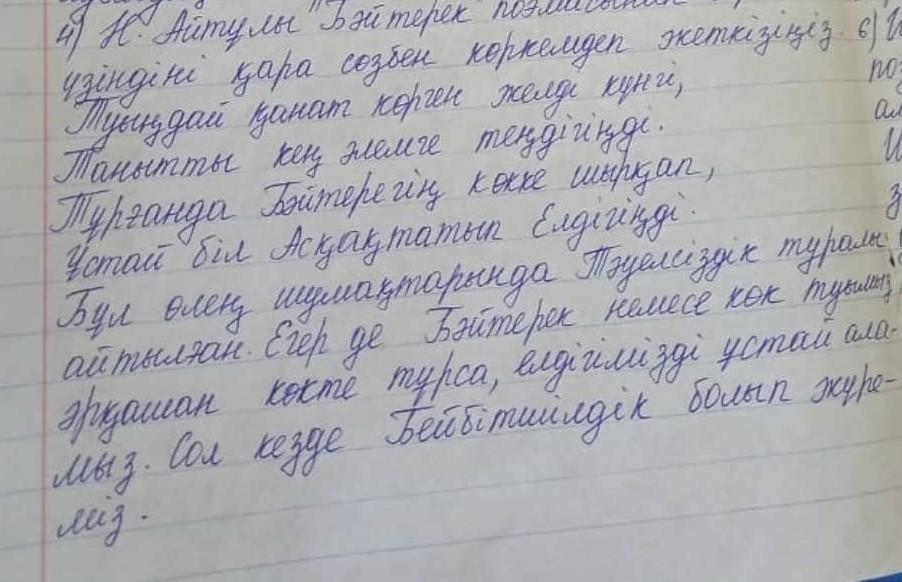 4) Н. Айтулы "Бәйтерек поэмасынан
үзіндіні қара сөзбен көркемдеп жеткізіңіз. 6)
Туыңдай қанат көрген желді күнгі,
Танытты кең әлемге теңдігіңді.
Тұрғанда Бәйтерегің көкке шырқап,
Ұстай біл Асқақтатып Елдігіңді.
Бұл өлең шумақтарында Тәуелсіздік туралы
айтылған. Егер де Бәйтерек немесе көк туымыз
әрқашан көкте тұрса, елдігімізді ұстай ала-
мыз. Сол кезде Бейбітшілдік болып жүре-
міз.